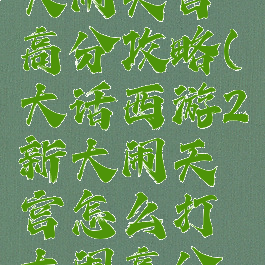 大闹天宫
高分攻略(
大话西游2
新大闹天
宫怎么打